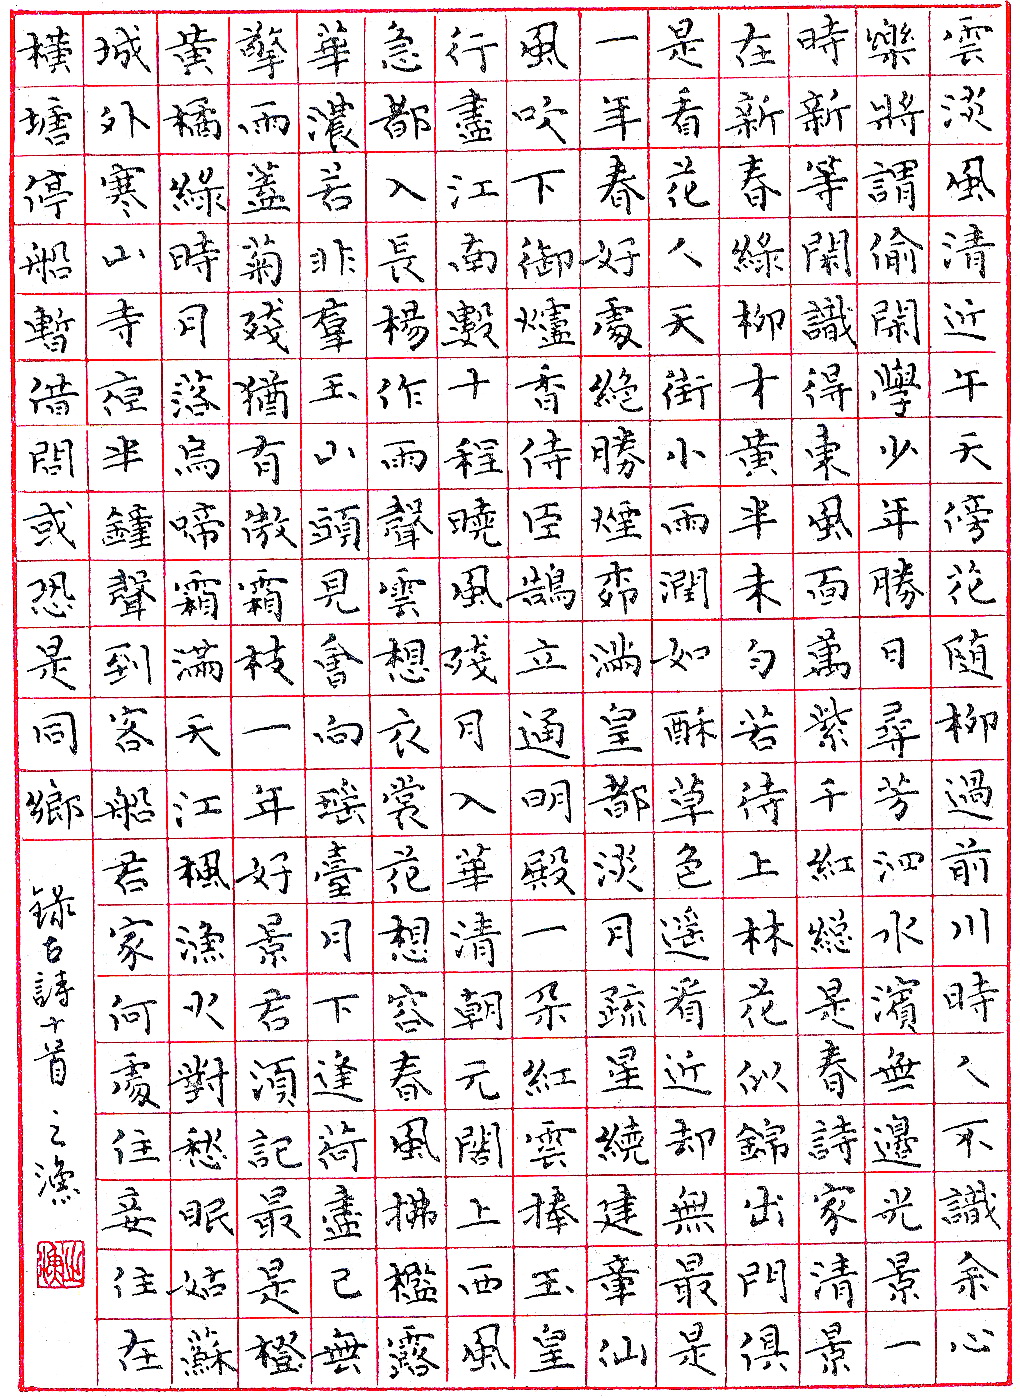 雲淡風清近午天傍花隨柳過前川時人不識余心
樂將謂偷閑學少年勝日尋芳泗水濱無邊光景一
時新等閑識得東風面萬紫千紅總是春詩家清景
在新春綠柳才黃半未勻若待上林花似錦出門俱
是看花人天街小雨潤如酥草色遙看近却無最是
一年春好處絕勝煙柳滿皇都淡月疏星繞建章仙
風吹下御爐香侍臣鵠立通明殿一朵紅雲捧玉皇
行盡江南數十程曉風殘月入華清朝元閣上西風
急都入長楊作雨聲雲想衣裳花想容春風拂檻露
華濃若非羣玉山頭見會向瑤臺月下逢荷盡已無
擎雨蓋菊殘猶有傲霜枝一年好景君須記最是橙
黃橘綠時月落烏啼霜滿天江楓漁火對愁眠姑蘇
城外寒山寺夜半鐘聲到客船君家何處住妾住在
橫塘停船暫借問或恐是同鄉
錄古詩十首 之漁
之漁